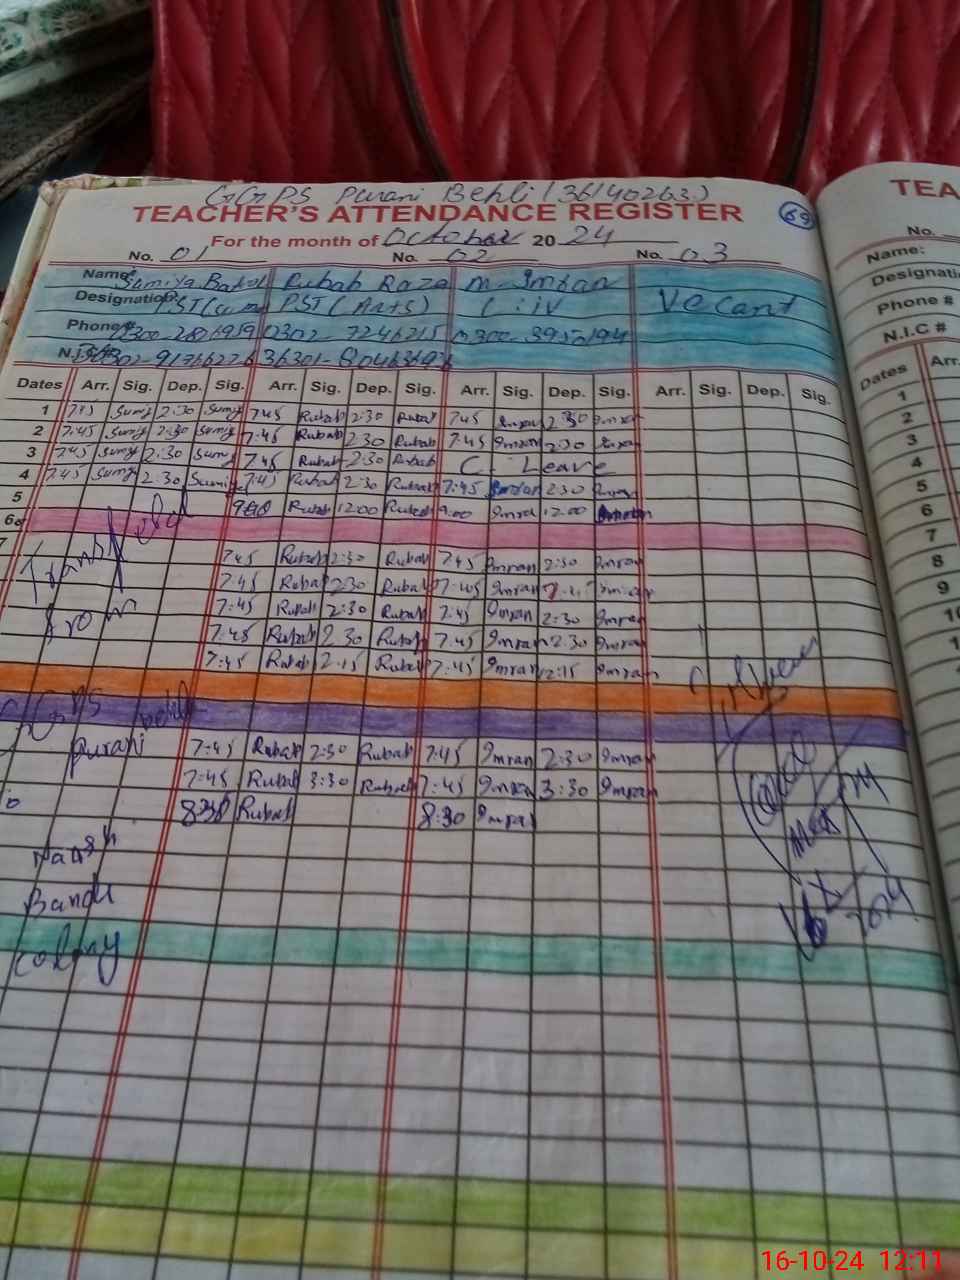 GGPS Purani Behli (36140263)
TEACHER'S ATTENDANCE REGISTER
69
For the month of October 2024
No. 01 No. 02 No. 03
Name: Sumiya Batol Rubab Raza M-Imran
Designation: PST PST (Arts) C-iv Vecant
Phone # 0302-7246215
N.I.C #
Dates Arr. Sig. Dep. Sig. Arr. Sig. Dep. Sig. Arr. Sig. Dep. Sig. Arr. Sig. Dep. Sig.
1 7:45 Sumy 2:30 Sumy 7:45 Rubab 2:30 Rubab 7:45 Imran 2:30 Imran
2 7:45 Sumy 2:30 Sumy 7:45 Rubab 2:30 Rubab 7:45 Imran 2:30 Imran
3 7:45 Sumy 2:30 Sumy 7:45 Rubab 2:30 Rubab C- Leave
4 7:45 Sumy 2:30 7:45 Rubab 2:30 Rubab 7:45 Imran 2:30 Imran
5 9:00 Rubab 12:00 Rubab 9:00 Imran 12:00 Imran
6
7 7:45 Rubab 2:30 Rubab 7:45 Imran 2:30 Imran
7:45 Rubab 2:30 Rubab 7:45 Imran Imran
7:45 Rubab 2:30 Rubab 7:45 Imran 2:30 Imran
7:45 Rubab 2:30 Rubab 7:45 Imran 2:30 Imran
7:45 Rubab 2:15 Rubab 7:45 Imran 12:15 Imran
7:45 Rubab 2:30 Rubab 7:45 Imran 2:30 Imran
7:45 Rubab 3:30 Rubab 7:45 Imran 3:30 Imran
8:30 Rubab 8:30 Imran
from
GGPS Behli
Purani
Bandi
Colony
2024
TEA
No.
Name:
Designati
Phone #
N.I.C #
Dates Arr.
1
2
3
4
5
6
7
8
9
10
1
16-10-24 12:11